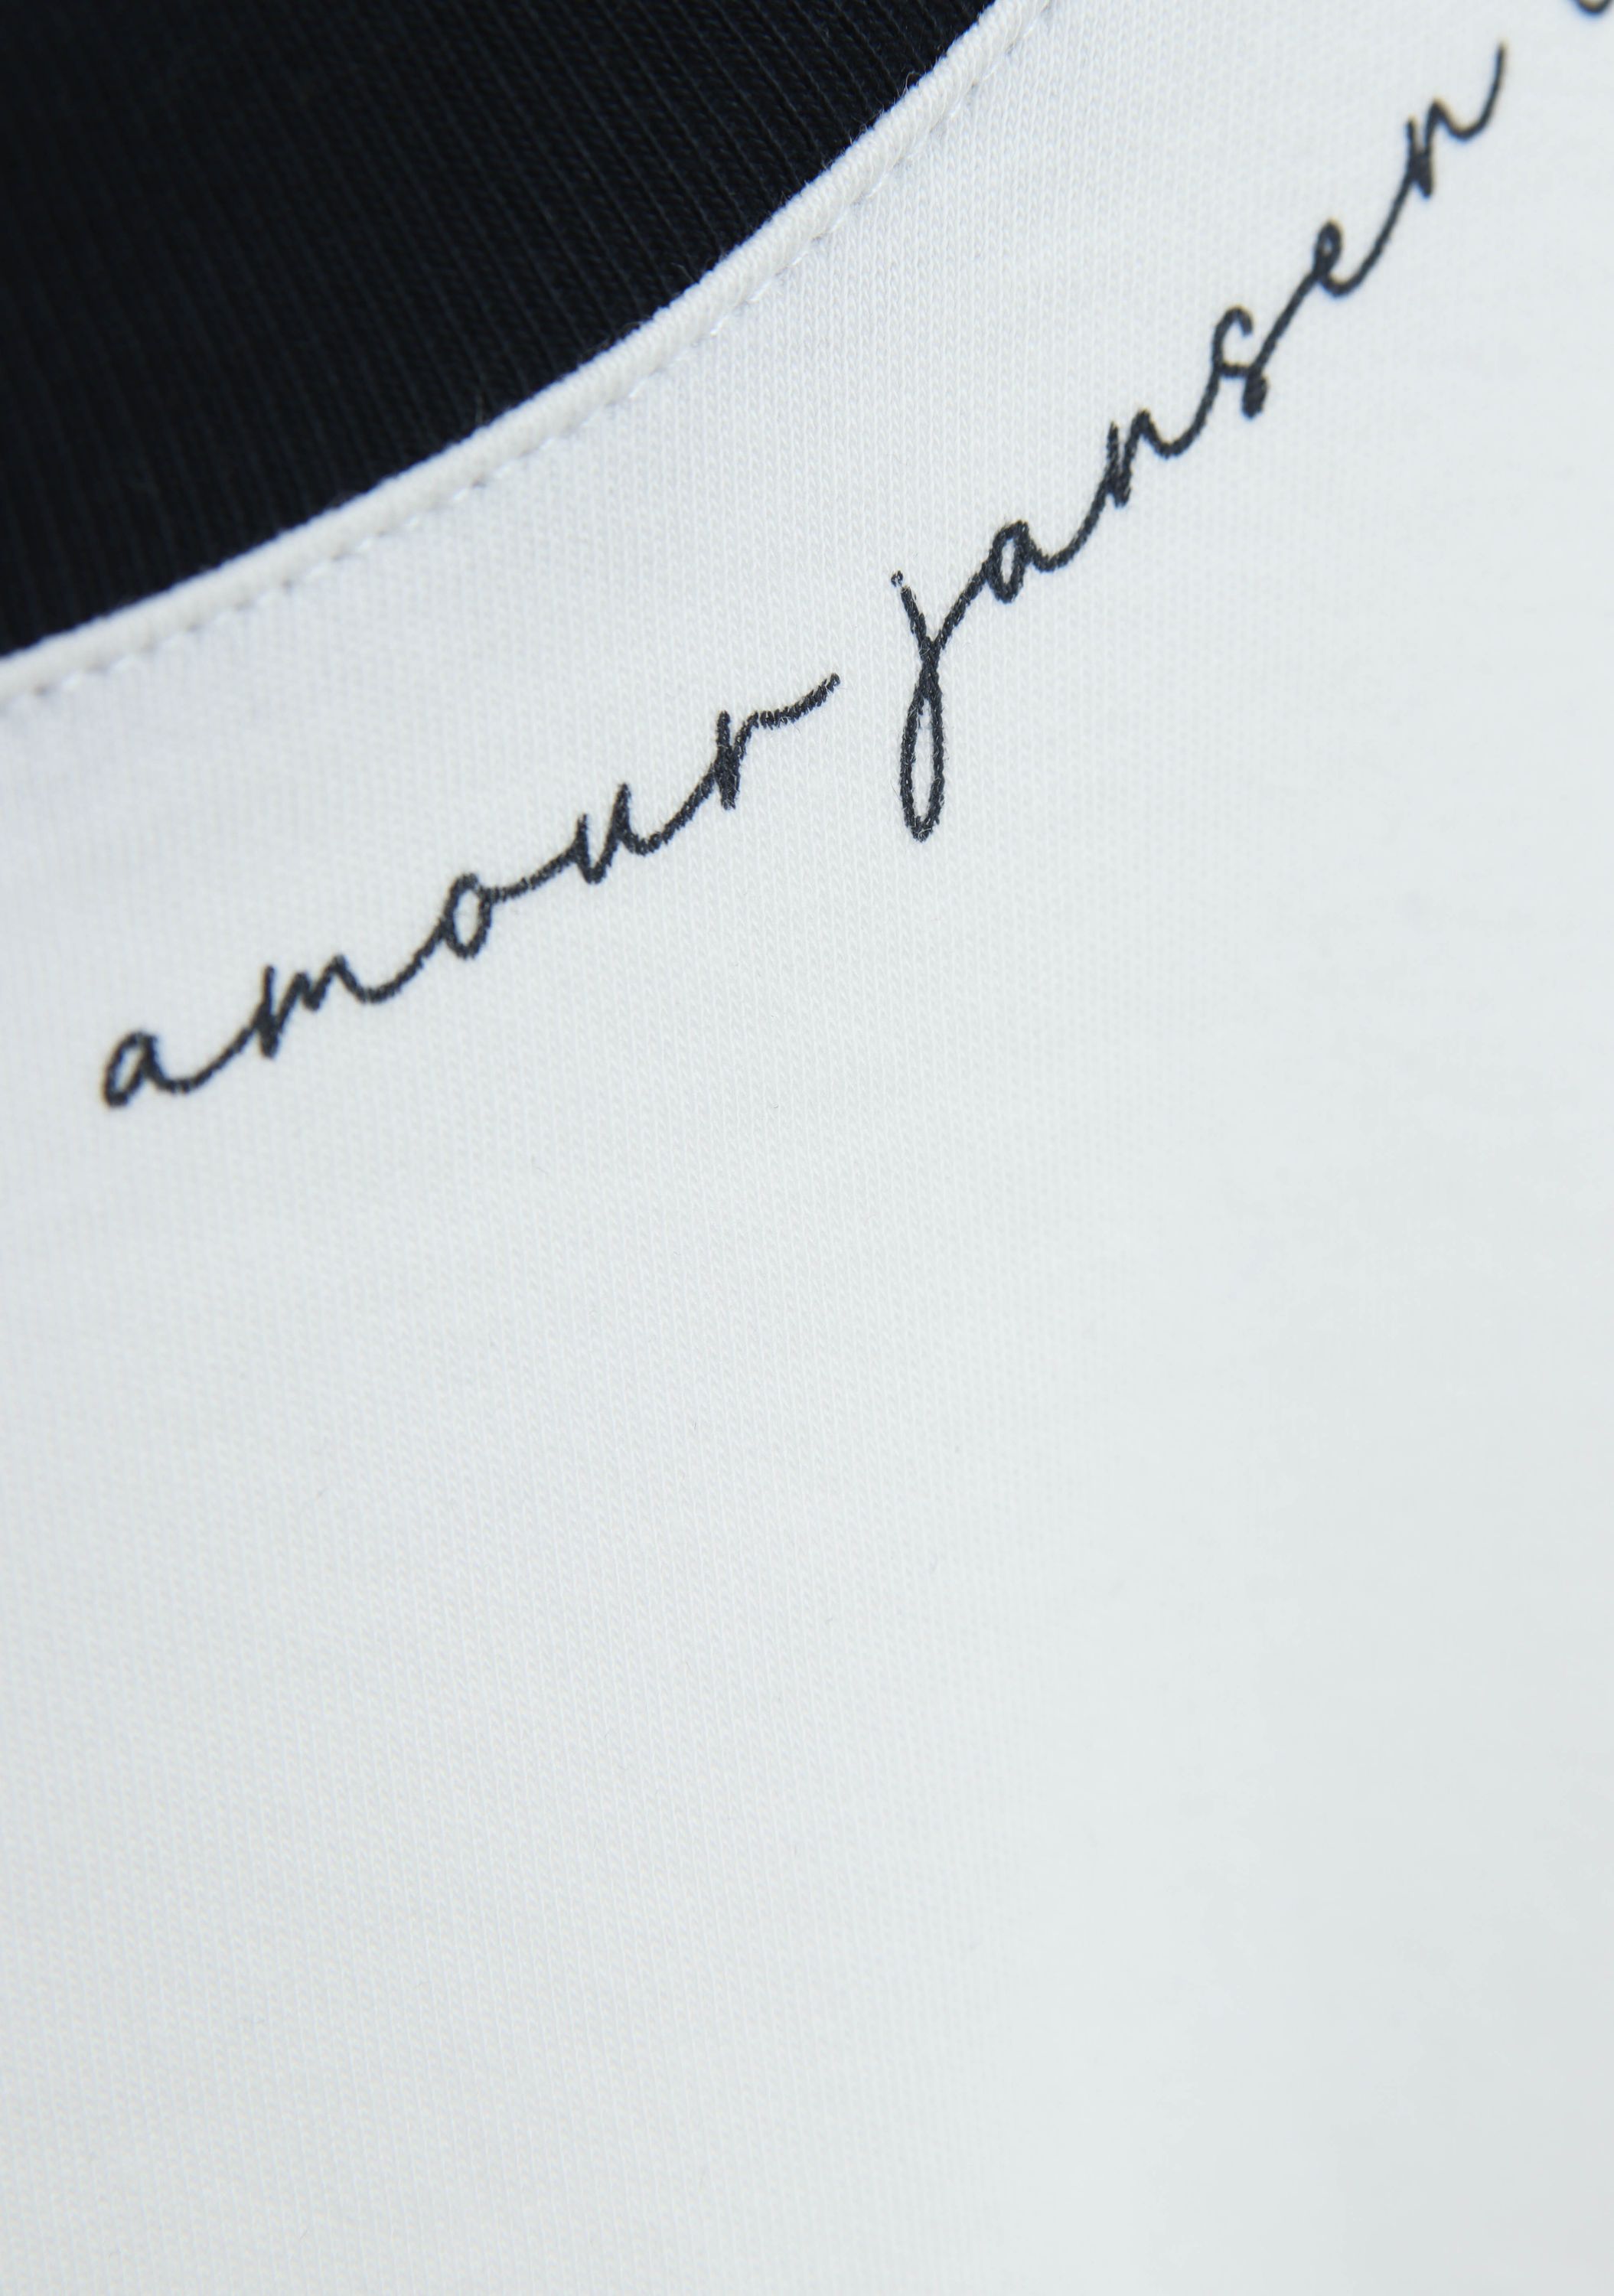 amour jansen